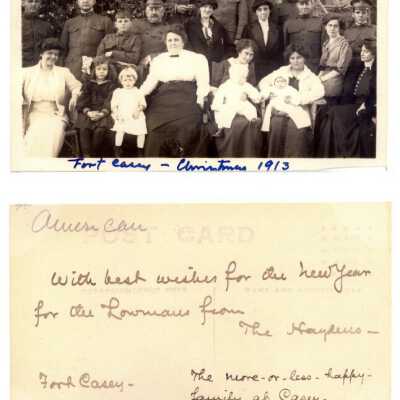 Fort Casey - Christmas 1913
American
POST CARD
With best wishes for the New Year
for the Lowmans from
The Haydens -
Ford Casey -
The more-or-less-happy-
family at Casey-